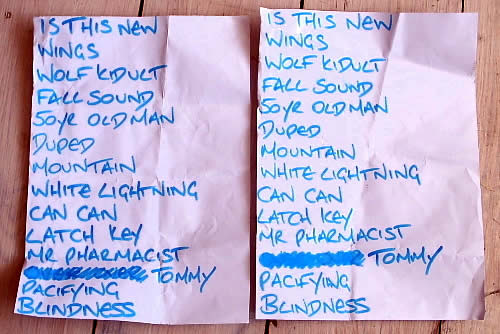 IS THIS NEW
WINGS
WOLF KIDULT
FALL SOUND
50YR OLD MAN
DUPED
MOUNTAIN
WHITE LIGHTNING
CAN CAN
LATCH KEY
MR PHARMACIST
TOMMY
PACIFYING
BLINDNESS
IS THIS NEW
WINGS
WOLF KIDULT
FALL SOUND
50YR OLD MAN
DUPED
MOUNTAIN
WHITE LIGHTNING
CAN CAN
LATCH KEY
MR PHARMACIST
TOMMY
PACIFYING
BLINDNESS